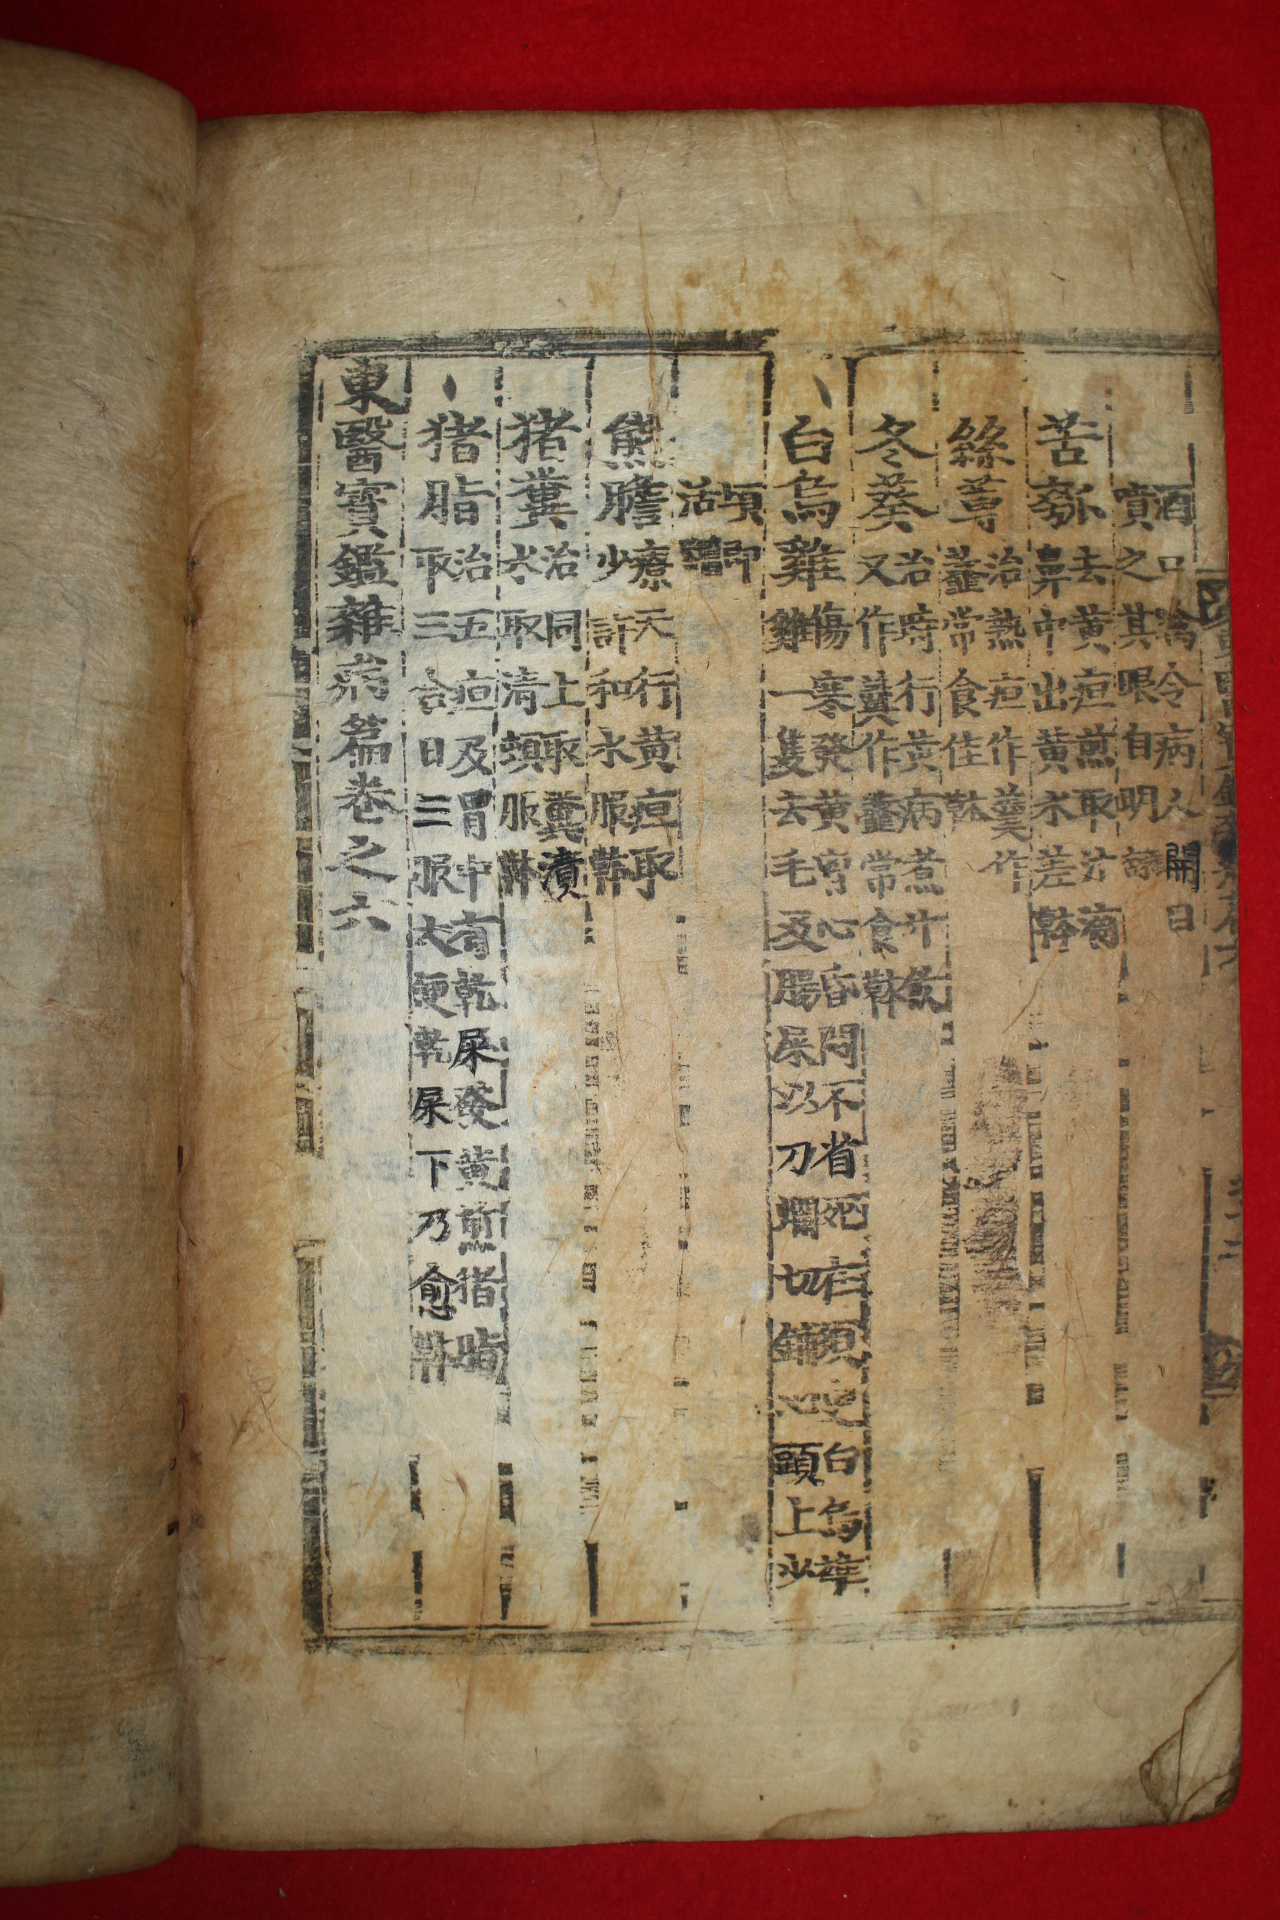 酒口噙令病人開目
噴之其眼自明
苦瓠去黃疸煎取汁滴
鼻中出黃水差
絲蓴治熱疸作羹作
虀常食佳
冬葵治時行黃病煮汁飮
又作羹作虀常食
白烏雞傷寒發黃 心昏悶不省死在須臾白烏雞
雞一隻去毛及腸屎以刀爛切鋪心頭上少
頃卽
活
熊膽療天行黃疸取
少許和水服
猪糞治同上取糞漬
水取淸頓服
猪脂治五疸及胃中有乾屎發黃煎猪脂
取三合日三服大便乾屎下乃愈
東醫寶鑑雜病篇卷之六